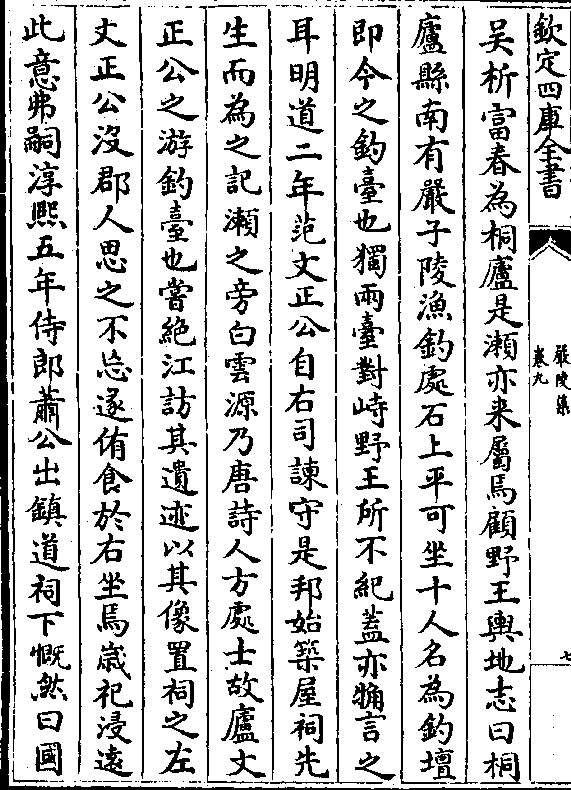 欽定四庫全書
嚴陵集
卷九
七
吳析富春為桐廬是瀬亦来屬焉顧野王輿地志曰桐
廬縣南有嚴子陵漁釣處石上平可坐十人名為釣壇
即今之釣臺也獨兩臺對峙野王所不紀蓋亦觕言之
耳明道二年范文正公自右司諫守是邦始築屋祠先
生而為之記瀬之旁白雲源乃唐詩人方處士故廬文
正公之游釣臺也嘗絶江訪其遺迹以其像置祠之左
文正公沒郡人思之不忘遂侑食於右坐焉嵗祀浸遠
此意弗嗣淳熙五年侍郎蕭公出鎮道祠下慨然曰國